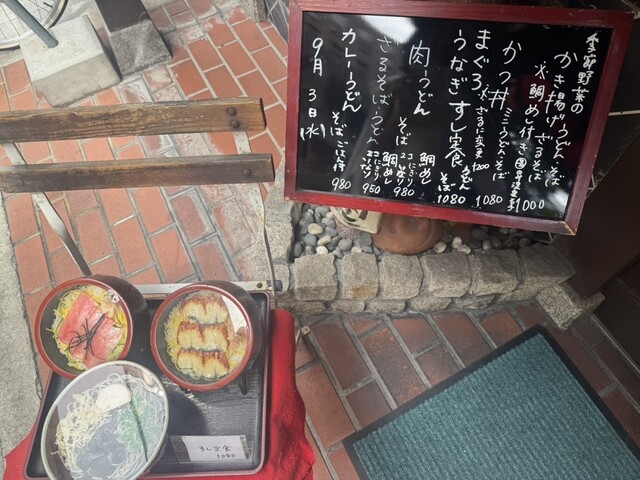 季節野菜の
かき揚げうどん・そば
※鯛めし付き ざるそば 1000
かつ丼 ミニうどん・そば 1080
まぐろ ※ざるに変更 1200
うなぎ すし定食 うどん そば 1080
肉うどん そば 鯛めし 2こにぎり 980
ざるそば・うどん 鯛めし 950
カレーうどん そば ごはん付 980
9月3日(水)
すし定食
1080